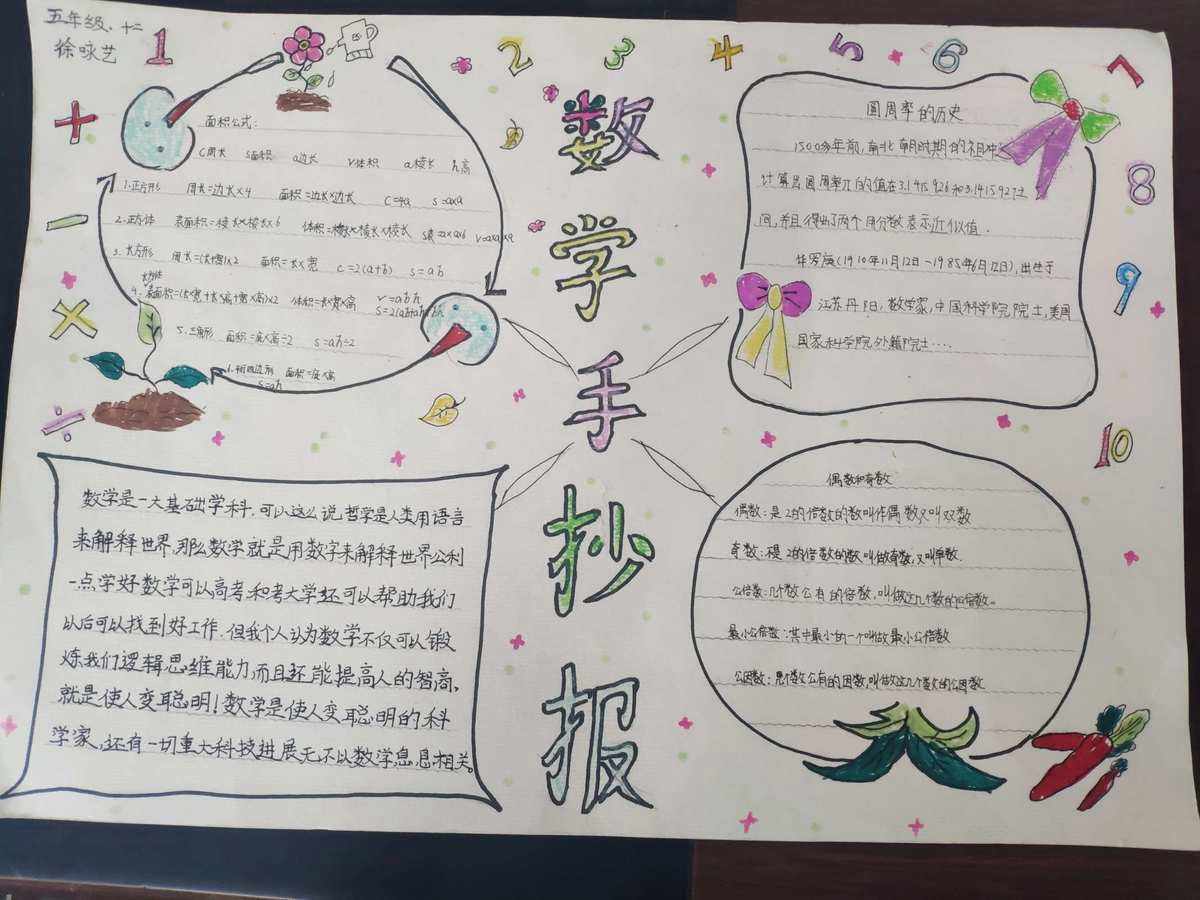 五年级、十二
徐咏艺
1 2 3 4 5 6 7
8
9
10
+
-
×
÷
数
学
手
抄
报
面积公式:
C周长 S面积 a边长 V体积 a棱长 h高
1.正方形 周长=边长×4 面积=边长×边长 C=4a S=a×a
2.正方体 表面积=棱长×棱长×6 体积=棱长×棱长×棱长 S表=a×a×6 V=a×a×a
3.长方形 周长=(长+宽)×2 面积=长×宽 C=2(a+b) S=ab
长方体
4.表面积=(长×宽+长×高+宽×高)×2 体积=长×宽×高 V=abh
S=2(ab+ah+bh)
5.三角形 面积=底×高÷2 S=ah÷2
6.平行四边形 面积=底×高
S=ah
圆周率的历史
1500多年前,南北朝时期的祖冲
计算出圆周率π的值在3.1415926和3.1415927之
间,并且得出了两个用分数表示近似值.
华罗庚(1910年11月12日-1985年6月12日),出生于
江苏丹阳,数学家,中国科学院院士,美国
国家科学院外籍院士....
数学是一大基础学科,可以这么说,哲学是人类用语言
来解释世界,那么数学就是用数字来解释世界公利
一点学好数学可以高考和考大学还可以帮助我们
以后可以找到好工作.但我个人认为数学不仅可以锻
炼我们逻辑思维能力,而且还能提高人的智商,
就是使人变聪明!数学是使人变聪明的科
学家,还有一切重大科技进展无不以数学息息相关。
偶数和奇数
偶数:是2的倍数的数叫作偶数,又叫双数
奇数:不是2的倍数的数叫做奇数,又叫单数.
公倍数:几个数公有的倍数,叫做这几个数的公倍数。
最小公倍数:其中最小的一个叫做最小公倍数
公因数:几个数公有的因数,叫做这几个数的公因数